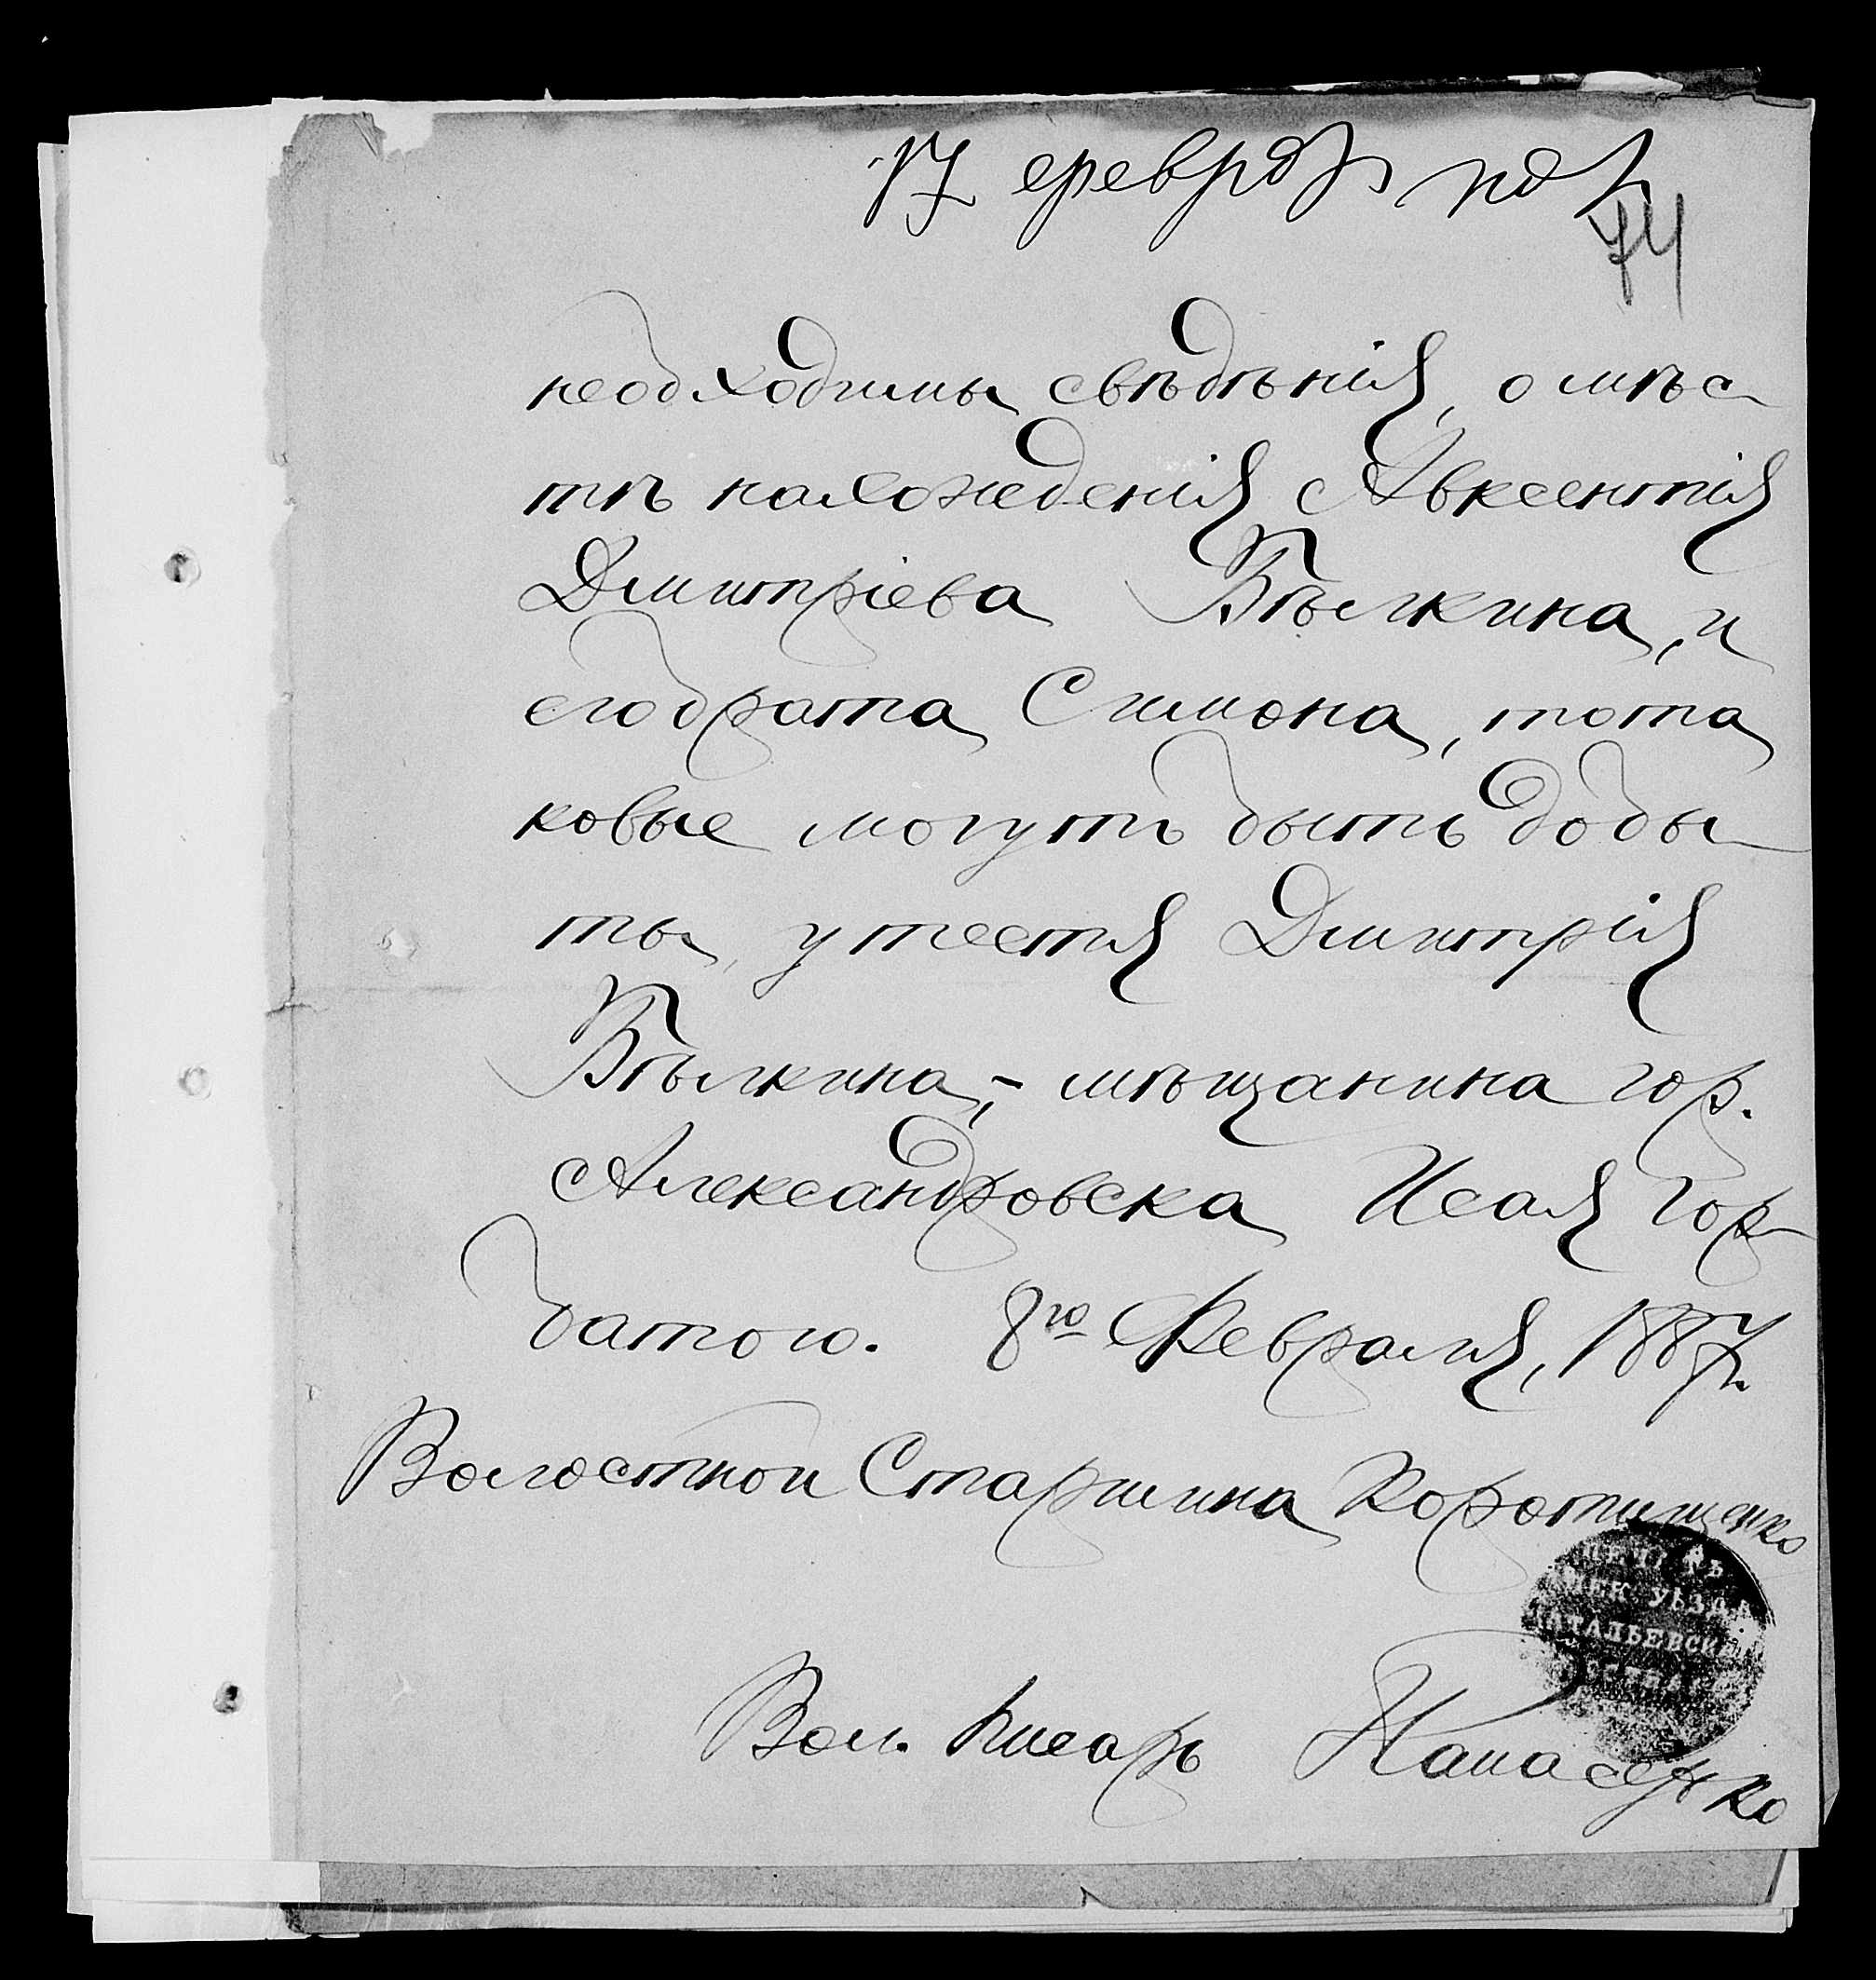 17 февр
74
необходимы свѣдѣнія, о мѣс-
тѣ нахожденія Авксентія
Дмитріева Бѣлкина, и
его брата Симона, то та
ковые могутъ быть добы-
ты, у тестя Дмитрія
Бѣлкина,- мѣщанина гор.
Александровска Исая Гор-
батого. 8го Февраля, 1887г.
Волостной Старшина Коротищенко
ПЕЧАТЬ
УѢЗДА
НАТАЛЬЕВСК
Вол. Писарь Панасенко